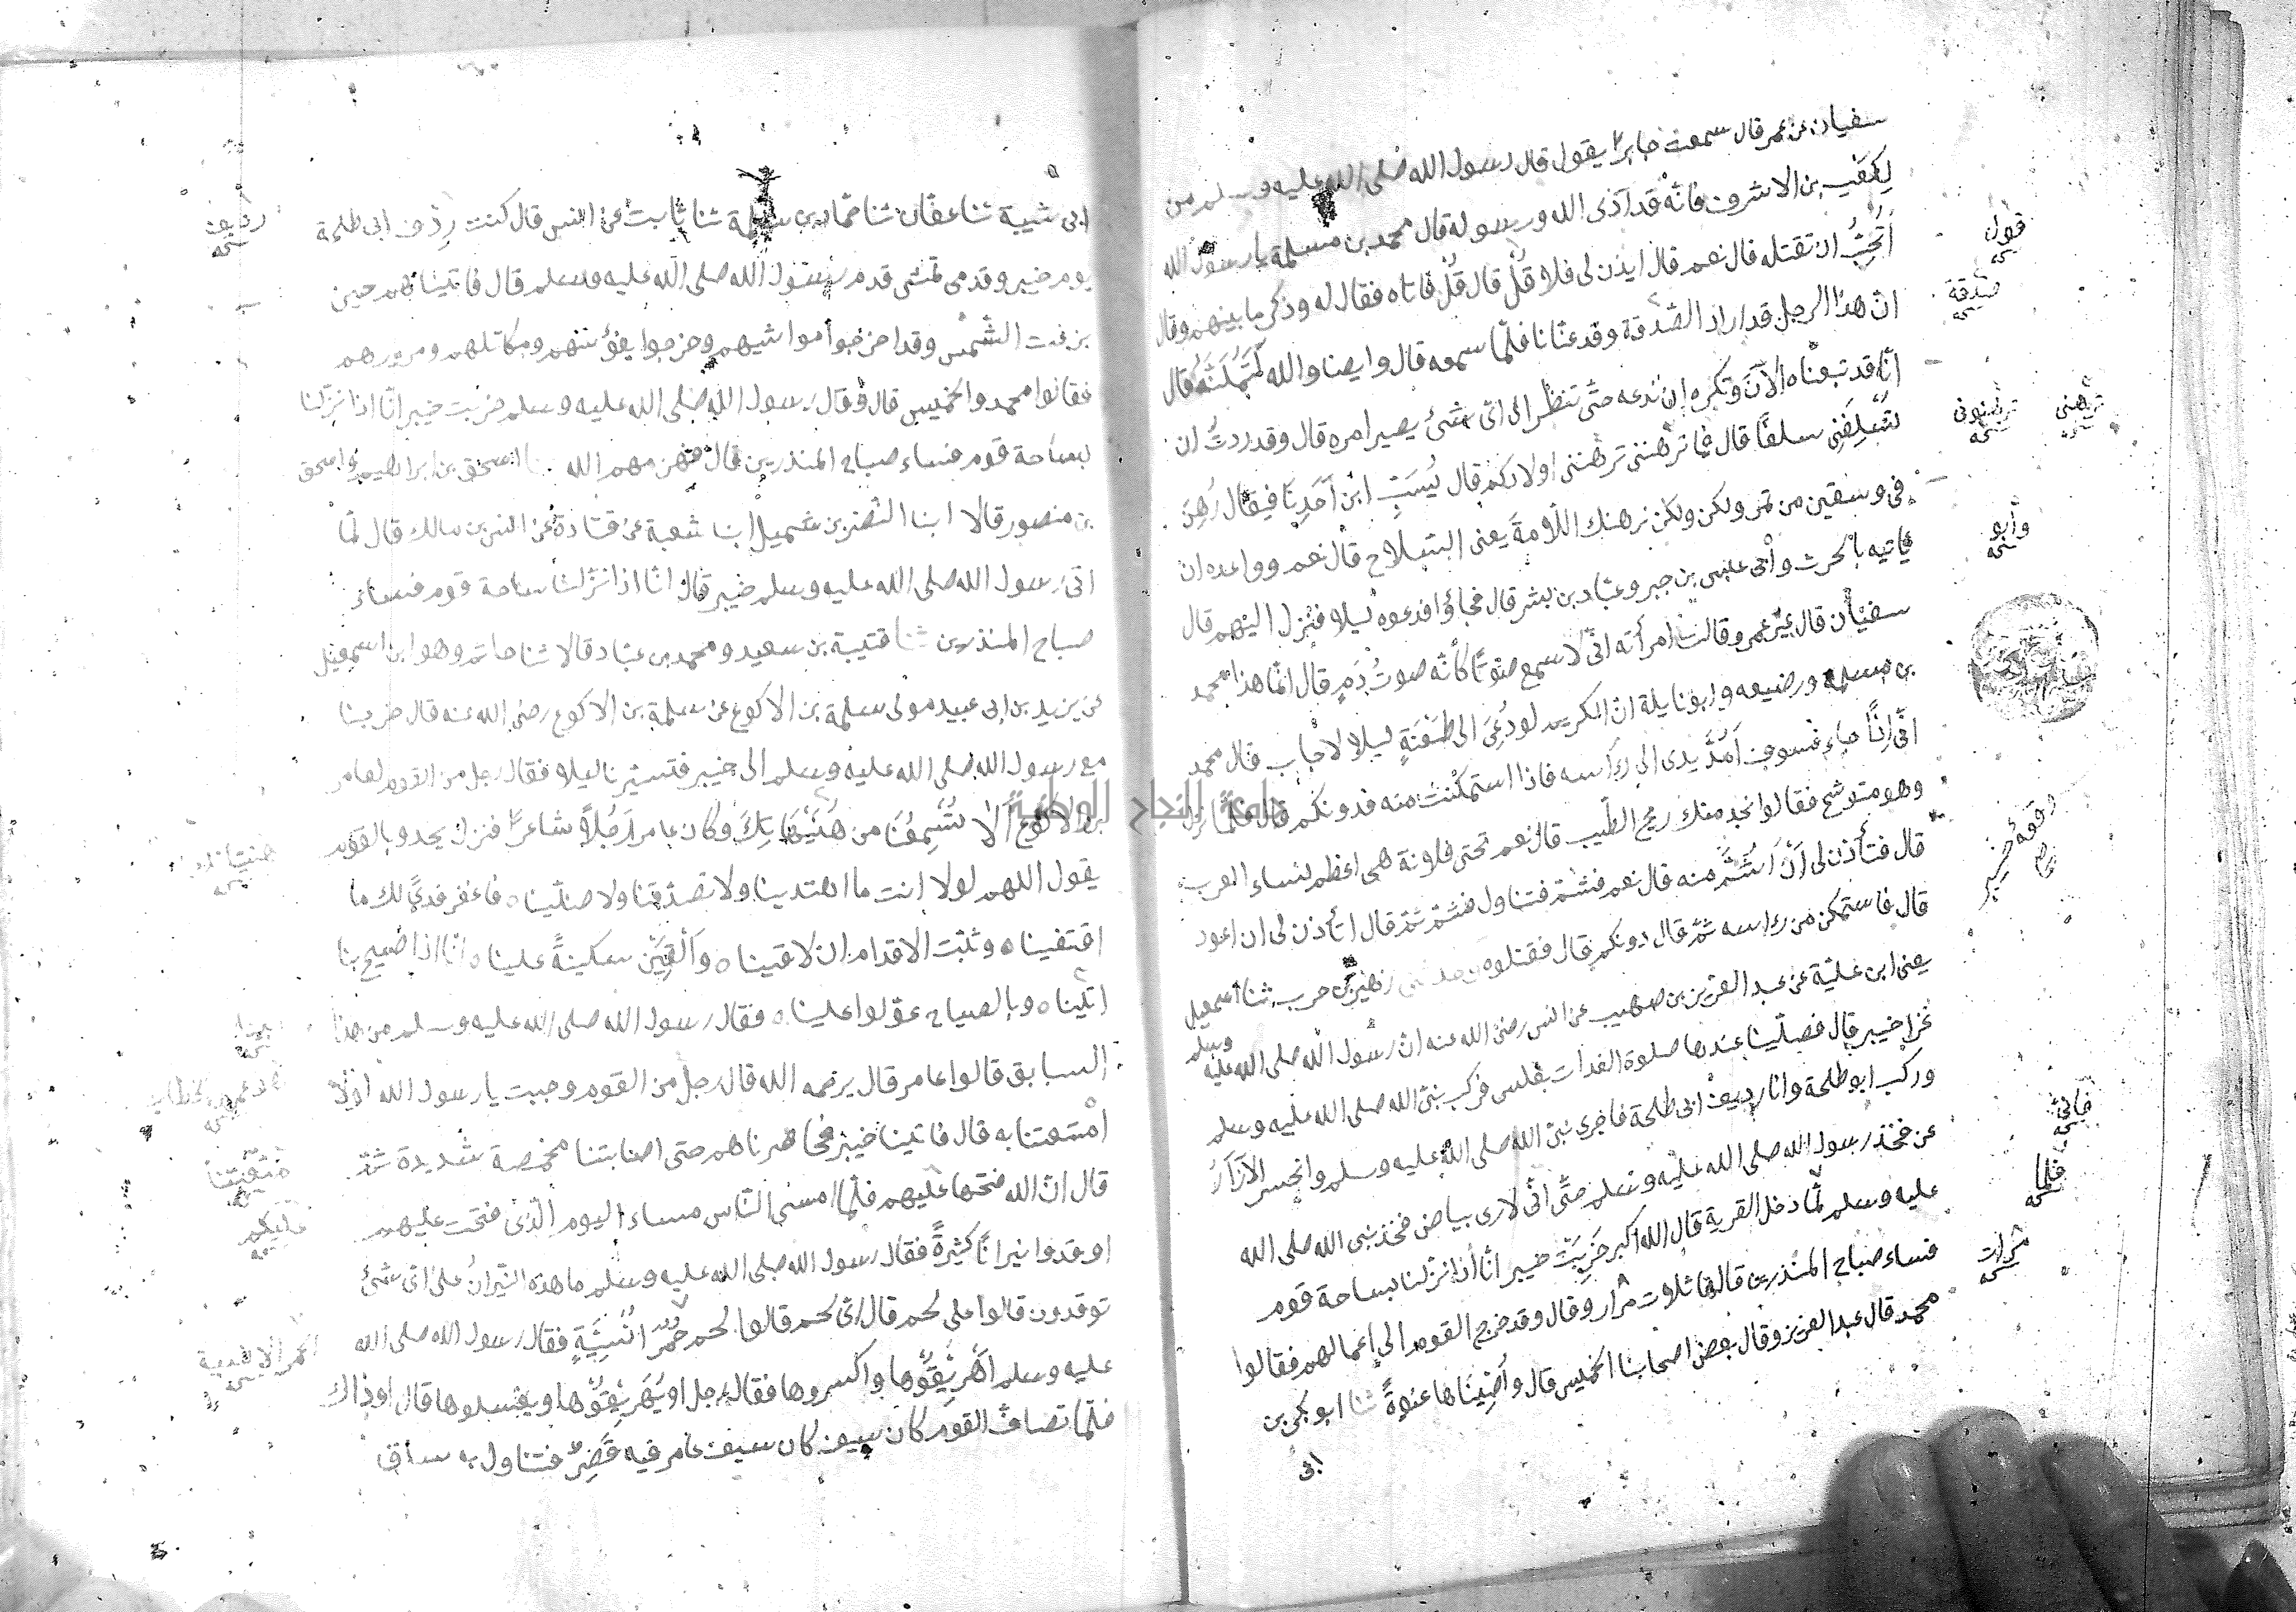 سفيان عن عمر قال سمعت جابرا يقول قال رسول الله صلى الله عليه وسلم من
لكعب بن الاشرف فانه قد آذى الله ورسوله قال محمد بن مسلمة يا رسول الله
اتحب ان تقتله قال نعم قال ايذن لى فلاقل قال قل فاتاه فقال له وذكر ما بينهم وقال
ان هذا الرجل قد اراد الصدقة وقد عنانا فلما سمعه قال وايضا والله لتملنه قال
انا قد تبعناه الآن ونكره ان ندعه حتى ننظر الى اى شئ يصير امره قال وقد اردت ان
تسلفنى سلفا قال فما ترهننى ترهننى اولادكم قال يسب ابن احدنا فيقال رهن
فى وسقين من تمر ولكن ولكن نرهنك اللأمة يعنى السلاح قال نعم وواعده ان
ياتيه بالحرث وابى عبس بن جبر وعباد بن بشر قال فجاؤا فدعوه ليلا فنزل اليهم قال
سفيان قال غير عمرو قالت امرأته انى لاسمع صوتا كأنه صوت دم قال انما هذا محمد
بن مسلمة ورضيعه وابو نايلة ان الكريم لو دعى الى طعنة ليلا لاجاب قال محمد
انى اذا جاء فسوف امد يدى الى راسه فاذا استمكنت منه فدونكم قال فلما نزل
وهو متوشح فقالوا نجد منك ريح الطيب قال نعم تحتى فلونة هى اعظم نساء العرب
قال فتأذن لى ان اشم منه قال نعم فشم فتناول فشم ثم قال أتأذن لى ان اعود
قال فاستمكن من راسه ثم قال دونكم قال فقتلوه زهير بن حرب ثنا اسمعيل
يعنى ابن علية عن عبد العزيز بن صهيب عن انس رضى الله عنه ان رسول الله صلى الله عليه وسلم
غزا خيبر قال فصلينا عندها صلوة الغدات بغلس فركب نبى الله صلى الله عليه وسلم
وركب ابو طلحة وانا رديف ابى طلحة فاجرى نبى الله صلى الله عليه وسلم وانحسر الازار
عن فخذ رسول الله صلى الله عليه وسلم حتى انى لارى بياض فخذ نبى الله صلى الله
عليه وسلم لما دخل القرية قال الله اكبر خربت خيبر انا اذا نزلنا بساحة قوم
فساء صباح المنذرين قالها ثلاث مرار وقال وقد خرج القوم الى اعمالهم فقالوا
محمد قال عبد العزيز وقال بعض اصحابنا الخميس قال واصبناها عنوة ثنا ابو بكر بن
ابى
قتول
نسخه
صدقة
نسخه
ترهنى
نسخه
ترهنونى
نسخه
وابو
نسخه
فانى
نسخه
فلما
نسخه
مرات
نسخه
ابى شيبة ثنا عفان ثنا حماد بن سلمة ثنا ثابت عن انس قال كنت ردف ابى طلحة
يوم خيبر وقدمى تمس قدم رسول الله صلى الله عليه وسلم قال فاتيناهم حين
بزغت الشمس وقد اخرجوا مواشيهم وخرجوا بفؤسهم ومكاتلهم ومرورهم
فقالوا محمد والخميس قال وقال رسول الله صلى الله عليه وسلم خربت خيبر انا اذا نزلنا
بساحة قوم فساء صباح المنذرين قال فهزمهم الله اسحق بن ابراهيم واسحق
بن منصور قالا ابنا النضر بن شميل ابنا شعبة عن قتادة عن انس بن مالك قال لما
اتى رسول الله صلى الله عليه وسلم خيبر قال انا اذا نزلنا بساحة قوم فساء
صباح المنذرين ثنا قتيبة بن سعيد ومحمد بن عباد قالا ثنا حاتم وهو ابن اسمعيل
عن يزيد بن ابى عبيد مولى سلمة بن الاكوع عن سلمة بن الاكوع رضى الله عنه قال خرجنا
مع رسول الله صلى الله عليه وسلم الى خيبر فتسيرنا ليلا فقال رجل من القوم لعامر
بن الاكوع الا تسمعنا من هنيهاتك وكان عامر رجلا شاعرا فنزل يحدو بالقوم
يقول اللهم لولا انت ما اهتدينا ولا تصدقنا ولا صلينا ٥ فاغفر فدى لك ما
اقتفينا ٥ وثبت الاقدام ان لاقينا ٥ والقين سكينة علينا ٥ انا اذا صيح بنا
اتينا ٥ وبالصياح عولوا علينا ٥ فقال رسول الله صلى الله عليه وسلم من هذا
السابق قالوا عامر قال يرحمه الله قال رجل من القوم وجبت يا رسول الله لولا
امتعتنا به قال فاتينا خيبر فحاصرناهم حتى اصابتنا مخمصة شديدة ثم
قال ان الله فتحها عليهم فلما امسى الناس مساء اليوم الذى فتحت عليهم
اوقدوا نيرانا كثيرة فقال رسول الله صلى الله عليه وسلم ما هذه النيران على اى شئ
توقدون قالوا على لحم قال اى لحم قالوا لحم حمر انسية فقال رسول الله صلى الله
عليه وسلم اهريقوها واكسروها فقال رجل او يهريقوها ويغسلوها قال او ذاك
فلما تصاف القوم كان سيف كان سيف عامر فيه قصر فتناول به ساق
رديف
نسخه
عليكم
نسخه
الحمر الانسية
نسخه
جامعة النجاح الوطنية